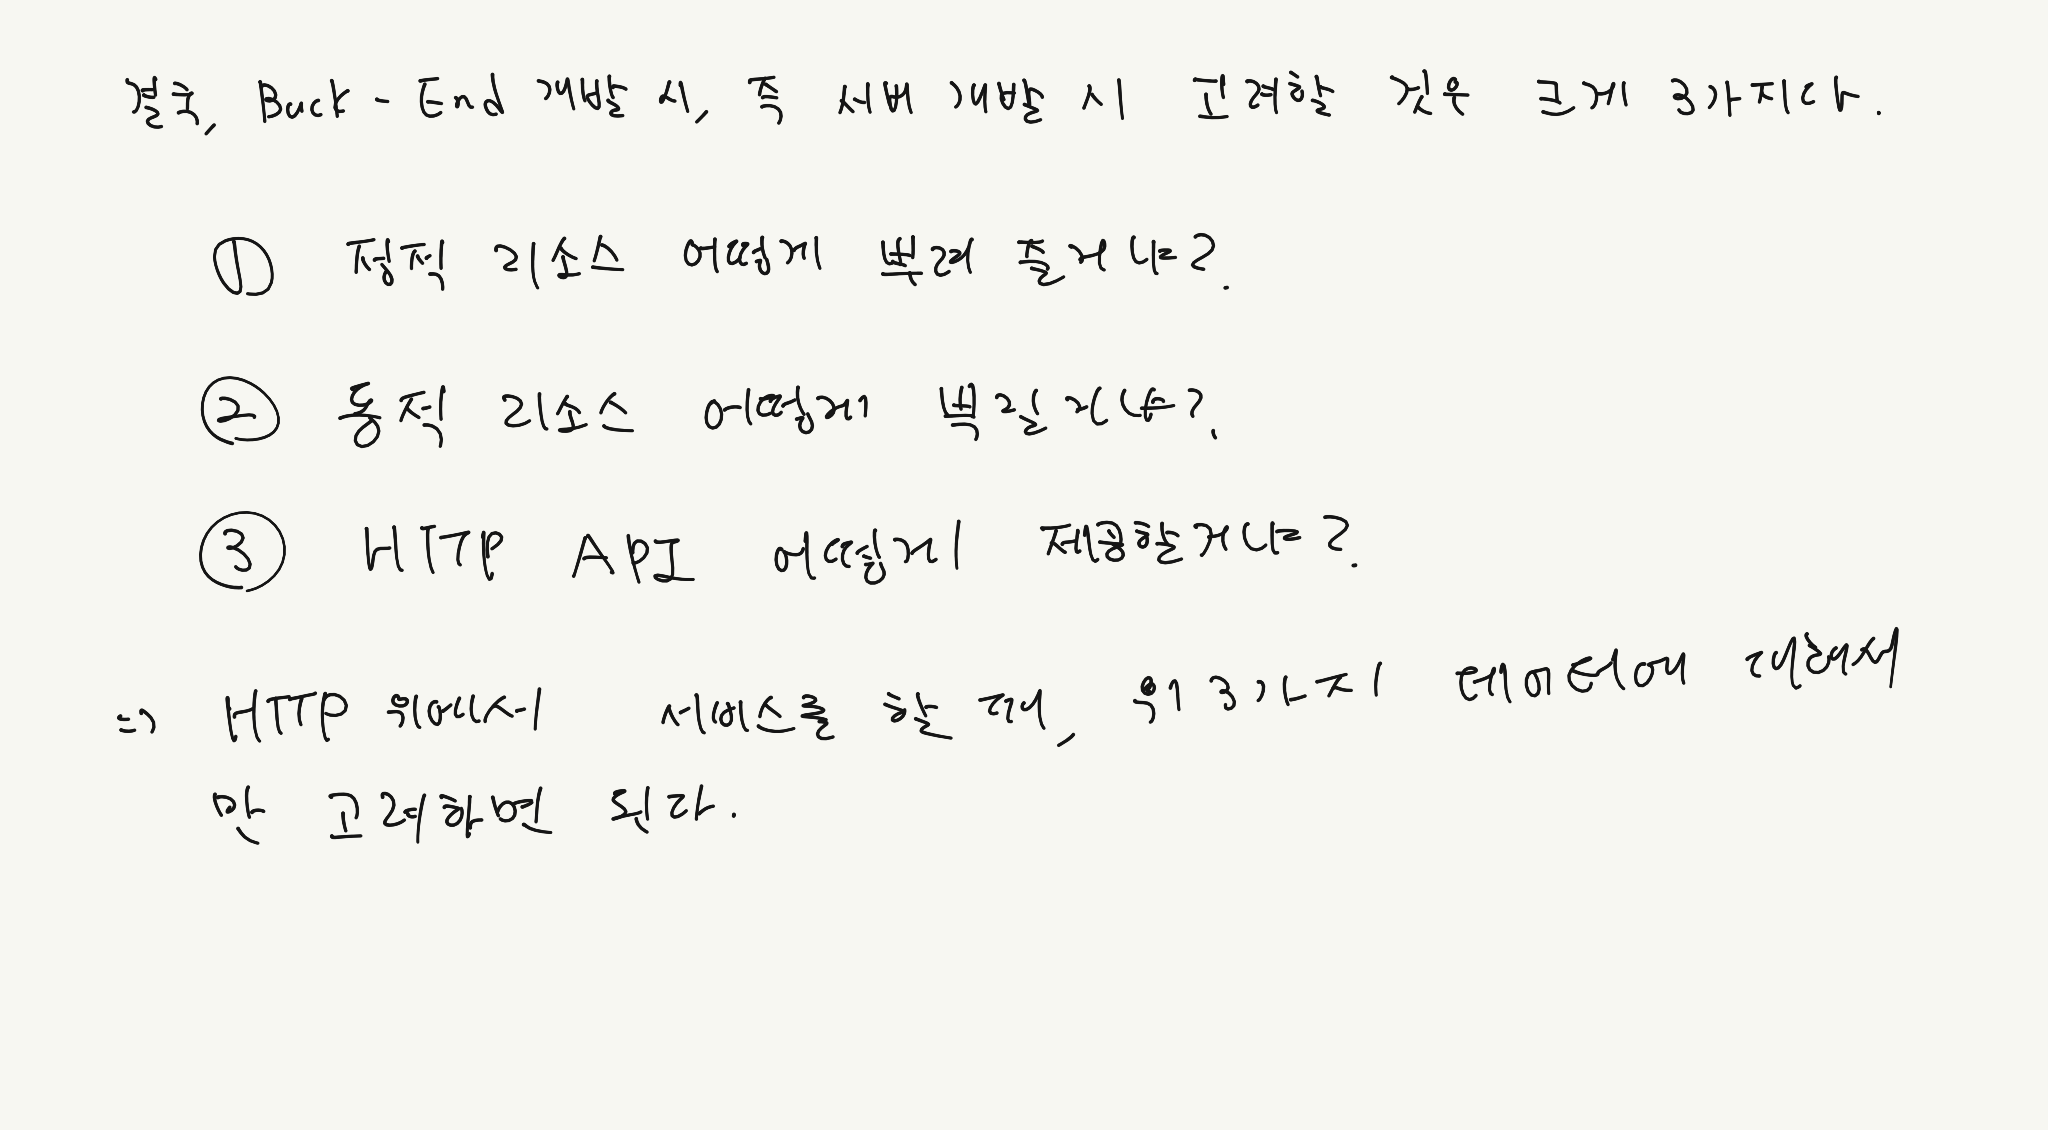 결국, Back - End 개발 시, 즉 서버 개발 시 고려할 것은 크게 3가지다.
① 정적 리소스 어떻게 뿌려 줄거냐?
② 동적 리소스 어떻게 뿍릴거냐?
③ HTTP API 어떻게 제공할거냐?
⇒ HTTP 위에서 서비스를 할 때, 위 3가지 데이터에 대해서
만 고려하면 된다.